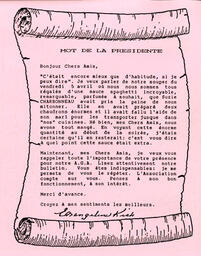 MOT DE LA PRESIDENTE
Bonjour Chers Amis,
"C'était encore mieux que d'habitude, si je
peux dire". Je veux parler de notre souper du
vendredi 5 avril où nous nous sommes tous
régalés d'une sauce spaghetti incroyable,
remarquable, parfumée à souhait, que Suzie
CHARBONEAU avait pris la peine de nous
mitonner. Elle en avait préparé deux
chaudrons énormes et il avait fallu l'aide de
son mari pour les transporter jusque dans
"nos" cuisines. Hé bien, mes Chers Amis, nous
avons tout mangé. En voyant cette énorme
quantité au début de la soirée, j'étais
certaine qu'il en resterait: c'est vous dire
à quel point cette sauce était extra.
Maintenant, mes Chers Amis, je veux vous
rappeler toute l'importance de votre présence
pour notre A.G.A. Lisez attentivement notre
bulletin. Vous êtes indispensables: je me
permets de vous le répéter. L'Association
compte sur vous. Pensez à son bon
fonctionnement, à son intérêt.
Merci d'avance.
Croyez à mes sentiments les meilleurs.